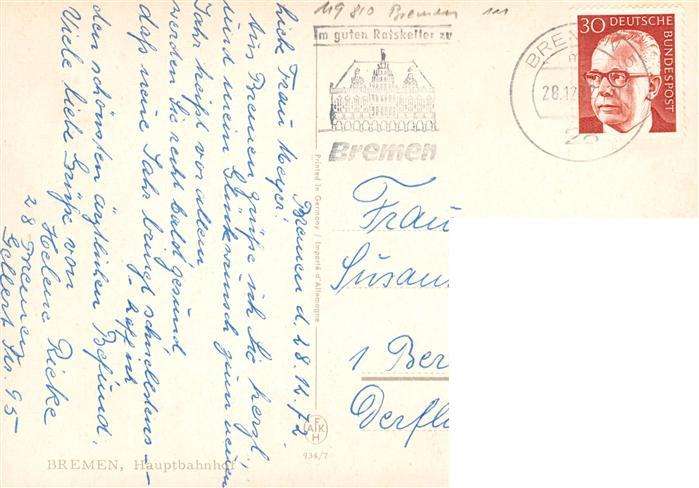 119 810 Bremen
Im guten Ratskeller zu
Bremen
BREMEN 5
28.12.
28
30 DEUTSCHE
BUNDESPOST
Bremen d. 28.12.72.
Liebe Frau Meyer!
Aus Bremen grüße ich Sie herzl.
und mein Glückwunsch zum neuen
Jahr heißt vor allem
werden Sie recht bald gesund
daß neue Jahr bringt schnellstens -
hoffentl.
den schönsten ärztlichen Befund.
Viele liebe Grüße von
Helene Rieke
28 Bremen
Gellert Str. 95
Printed in Germany / Imprimé d'Allemagne
Frau
Susan
1 Ber
Derfl
AFKH
934/7
BREMEN, Hauptbahnhof